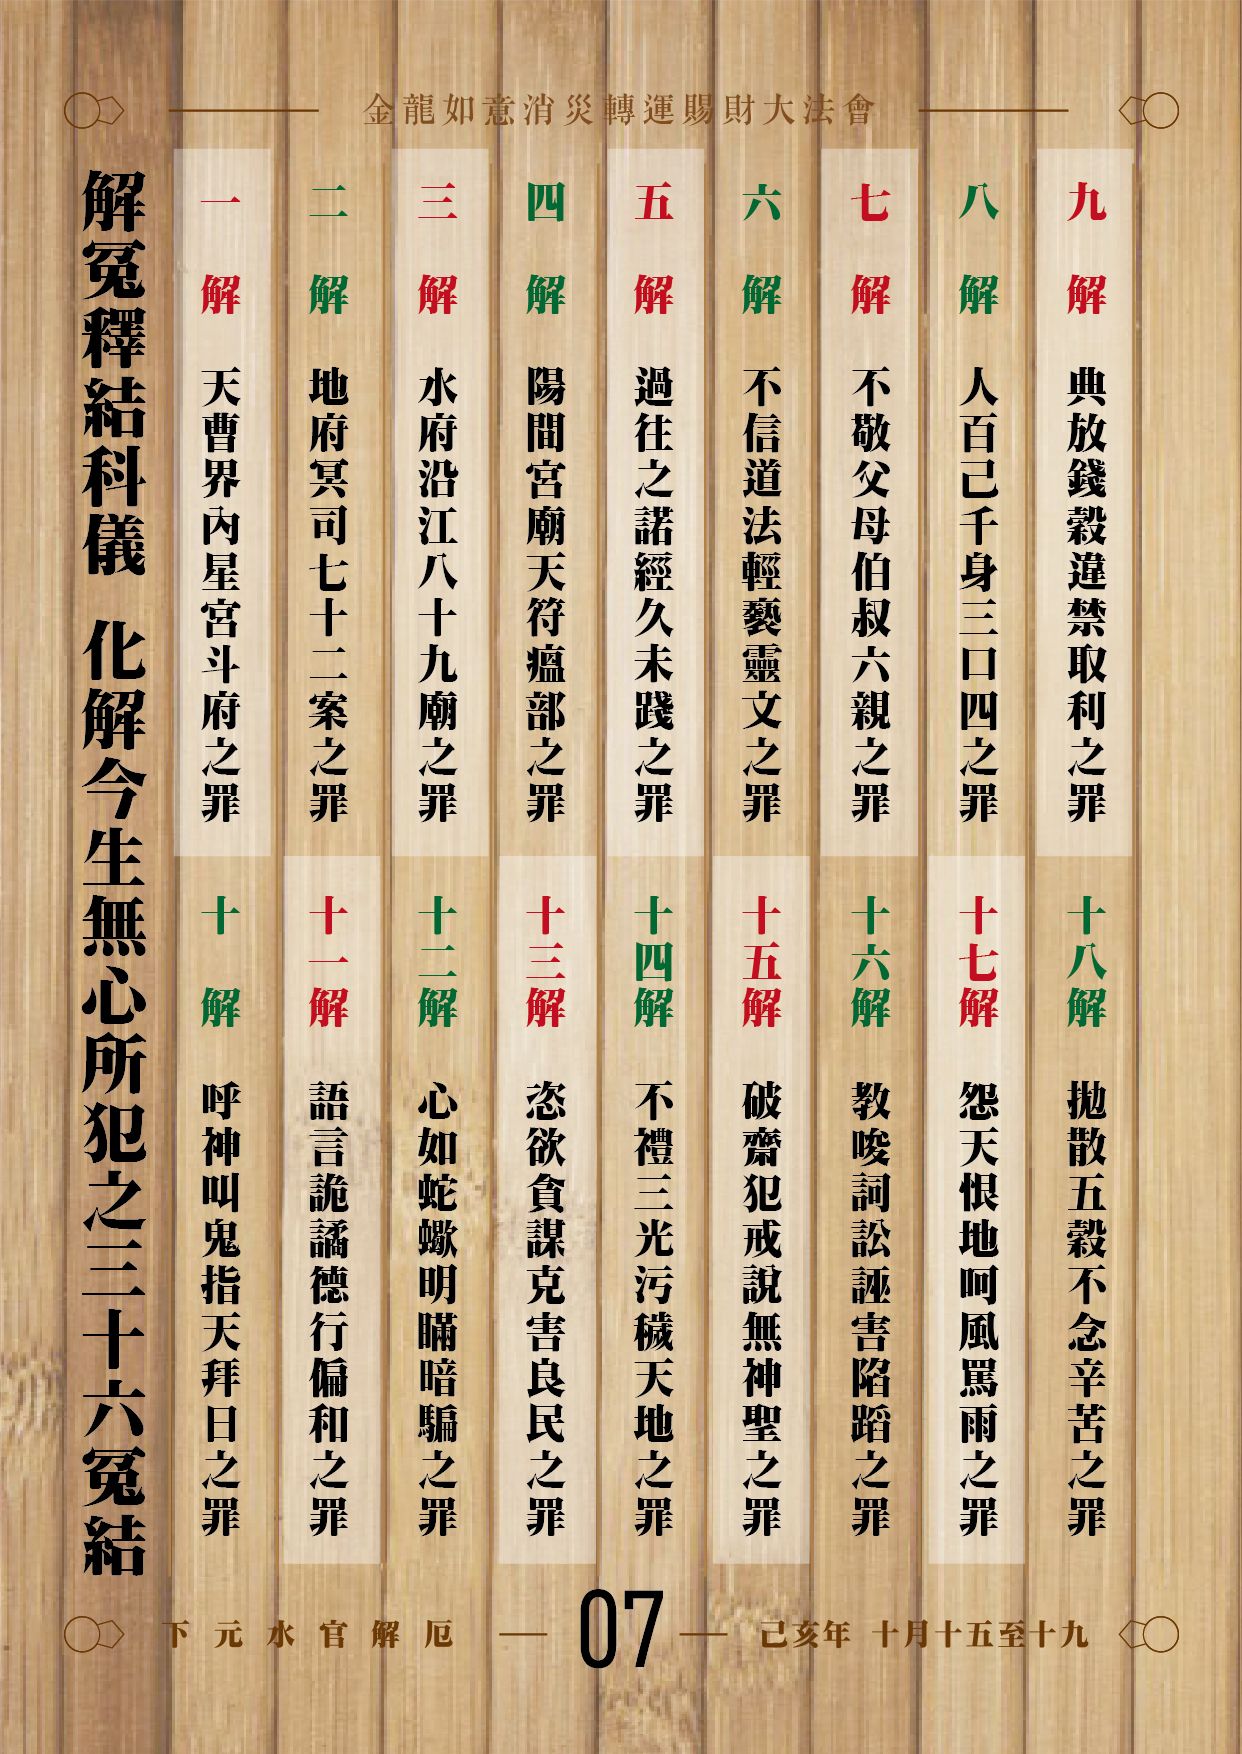 金龍如意消災轉運賜財大法會
解冤釋結科儀 化解今生無心所犯之三十六冤結
一解 天曹界內星宮斗府之罪
二解 地府冥司七十二案之罪
三解 水府沿江八十九廟之罪
四解 陽間宮廟天符瘟部之罪
五解 過往之諾經久未踐之罪
六解 不信道法輕褻靈文之罪
七解 不敬父母伯叔六親之罪
八解 人百己千身三口四之罪
九解 典放錢穀違禁取利之罪
十解 呼神叫鬼指天拜日之罪
十一解 語言詭譎德行偏和之罪
十二解 心如蛇蠍明瞞暗騙之罪
十三解 恣欲貪謀克害良民之罪
十四解 不禮三光污穢天地之罪
十五解 破齋犯戒說無神聖之罪
十六解 教唆詞訟誣害陷蹈之罪
十七解 怨天恨地呵風罵雨之罪
十八解 拋散五穀不念辛苦之罪
下元水官解厄
07
己亥年 十月十五至十九